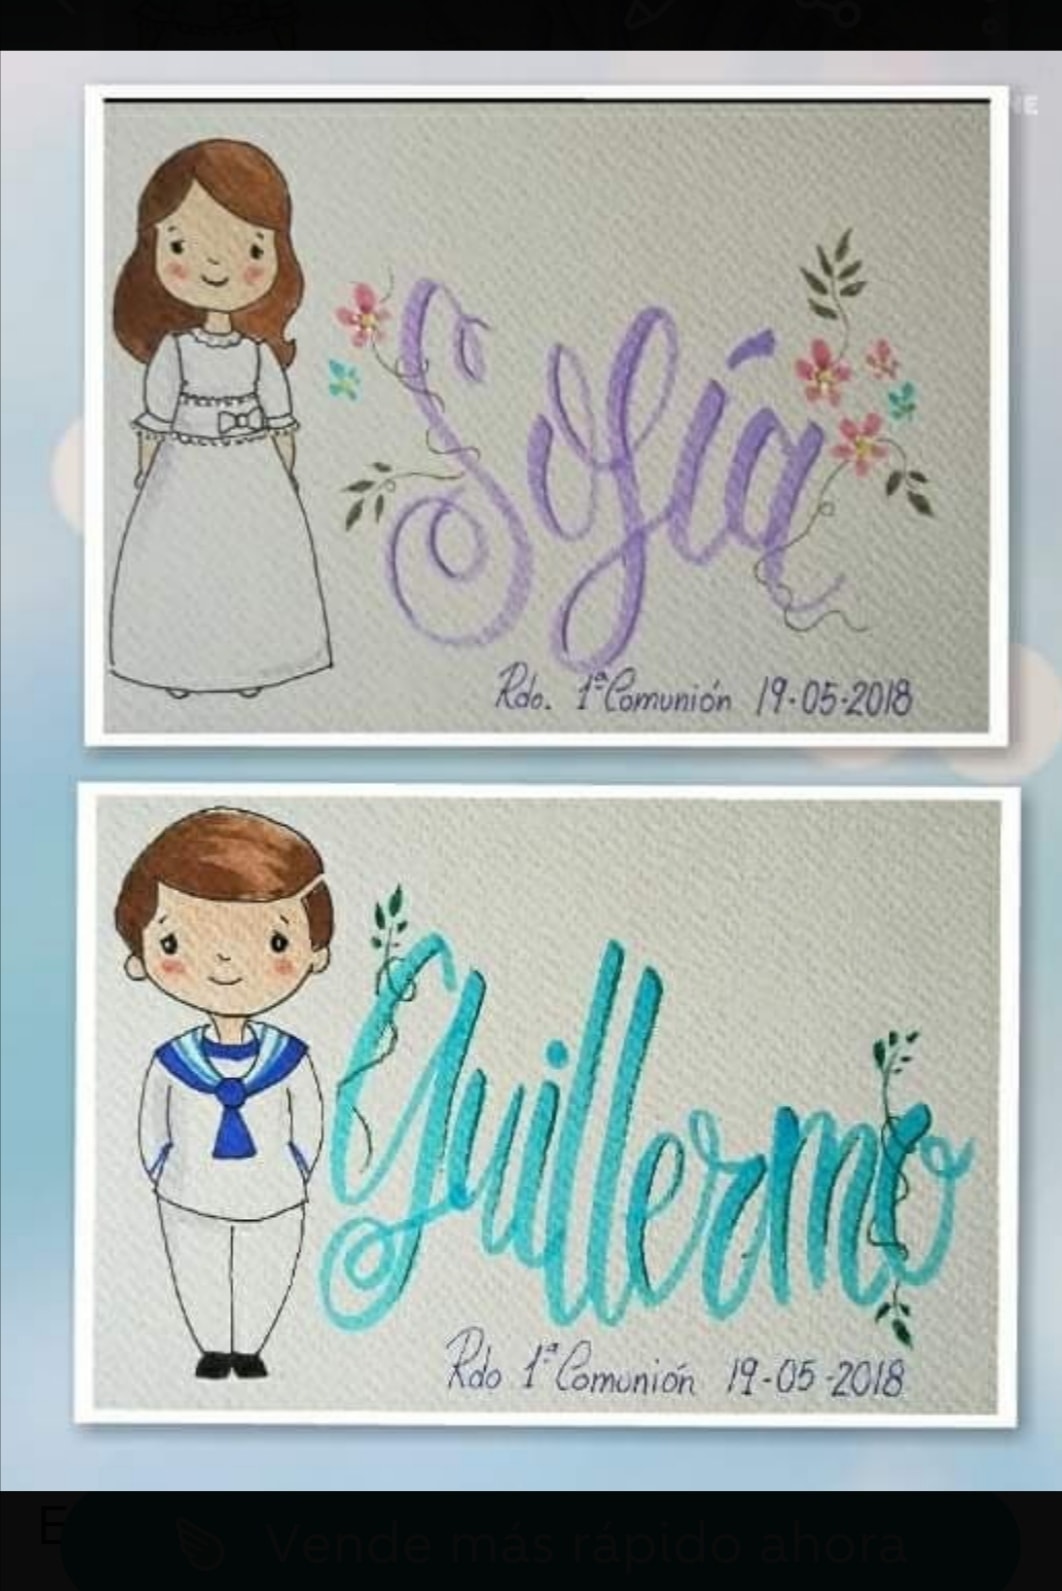 NE
Sofía
Rdo. 1ª Comunión 19-05-2018
Guillermo
Rdo 1ª Comunión 19-05-2018
E
Vende más rápido ahora